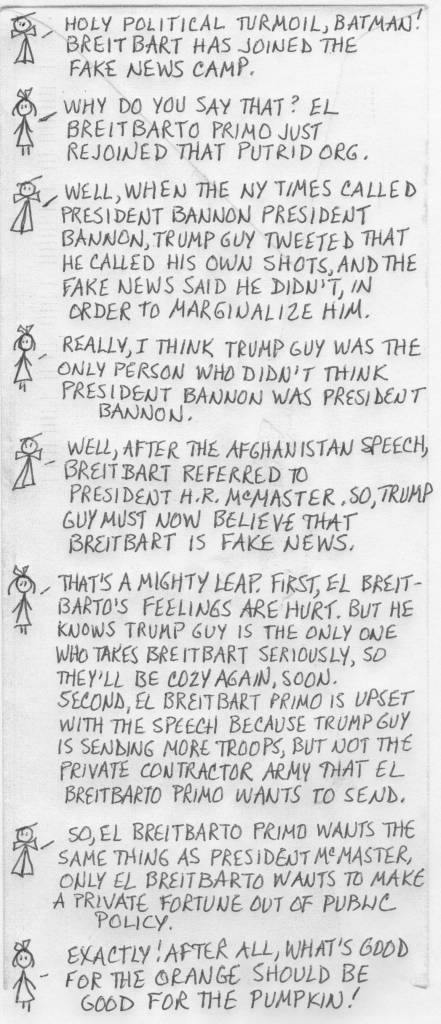 HOLY POLITICAL TURMOIL, BATMAN!
BREITBART HAS JOINED THE
FAKE NEWS CAMP.
WHY DO YOU SAY THAT? EL
BREITBARTO PRIMO JUST
REJOINED THAT PUTRID ORG.
WELL, WHEN THE NY TIMES CALLED
PRESIDENT BANNON PRESIDENT
BANNON, TRUMP GUY TWEETED THAT
HE CALLED HIS OWN SHOTS, AND THE
FAKE NEWS SAID HE DIDN'T, IN
ORDER TO MARGINALIZE HIM.
REALLY, I THINK TRUMP GUY WAS THE
ONLY PERSON WHO DIDN'T THINK
PRESIDENT BANNON WAS PRESIDENT
BANNON.
WELL, AFTER THE AFGHANISTAN SPEECH,
BREITBART REFERRED TO
PRESIDENT H.R. McMASTER. SO, TRUMP
GUY MUST NOW BELIEVE THAT
BREITBART IS FAKE NEWS.
THAT'S A MIGHTY LEAP. FIRST, EL BREIT-
BARTO'S FEELINGS ARE HURT. BUT HE
KNOWS TRUMP GUY IS THE ONLY ONE
WHO TAKES BREITBART SERIOUSLY, SO
THEY'LL BE COZY AGAIN, SOON.
SECOND, EL BREITBART PRIMO IS UPSET
WITH THE SPEECH BECAUSE TRUMP GUY
IS SENDING MORE TROOPS, BUT NOT THE
PRIVATE CONTRACTOR ARMY THAT EL
BREITBARTO PRIMO WANTS TO SEND.
SO, EL BREITBARTO PRIMO WANTS THE
SAME THING AS PRESIDENT McMASTER,
ONLY EL BREITBARTO WANTS TO MAKE
A PRIVATE FORTUNE OUT OF PUBLIC
POLICY.
EXACTLY! AFTER ALL, WHAT'S GOOD
FOR THE ORANGE SHOULD BE
GOOD FOR THE PUMPKIN!